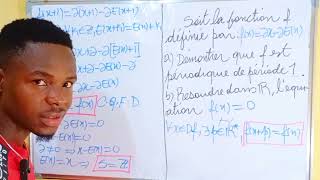 f(x+1)=2(x+1)-2E(x+1)
=2x+2-2[E(x)+1]
2x+2-2E(x)-2
2x-2E(x)
f(x) C.Q.F.D
2E(x)=0
2≠0 ⇒ x-E(x)=0
E(x)=x ⇒ S=ℤ
Soit la fonction f
définie par f(x)=2x-2E(x)
a) Demontrer que f est
périodique de période 1.
b) Resoudre dans ℝ, l'equ-
ation f(x)=0
∀x∈Df, ∃p∈ℝ*, f(x+p)=f(x)